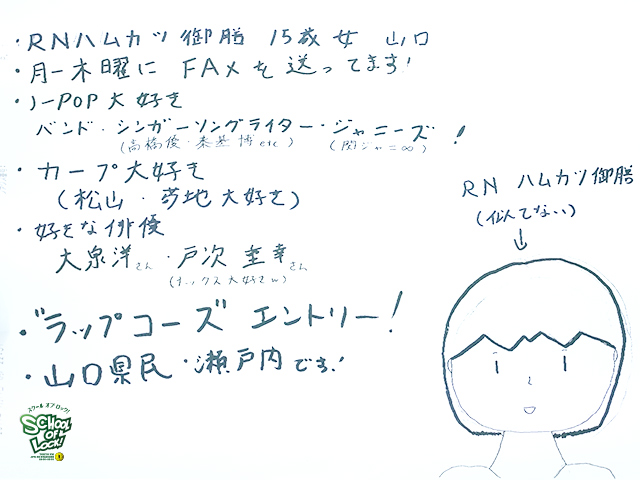 ・RNハムカツ御膳 15歳 女 山口
・月〜木曜に FAXを送ってます!
・J-POP大好き
バンド・シンガーソングライター・ジャニーズ!
(高橋優・秦基博etc) (関ジャニ∞)
・カープ大好き
(松山・菊地大好き)
・好きな俳優
大泉洋さん・戸次重幸さん
(ナックス大好きw)
・ラップコーズ エントリー!
・山口県民・瀬戸内です!
RN ハムカツ御膳
(似てない)
↓
スクール オブ ロック!
SCHOOL OF LOCK!